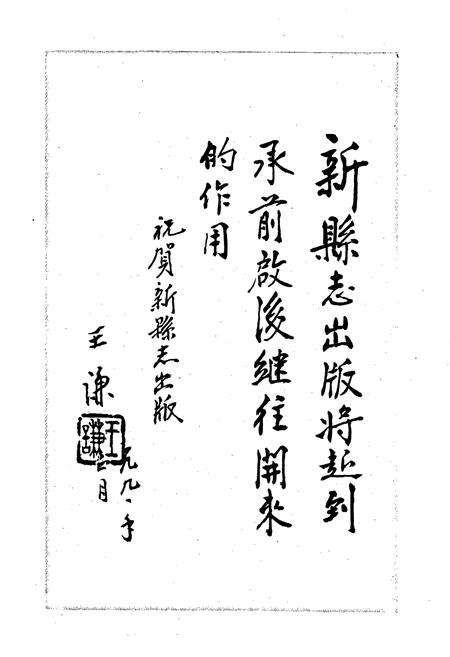 新縣志出版将起到
承前啟後继往開來
的作用
祝賀新縣志出版
王谦
一九九一年
月